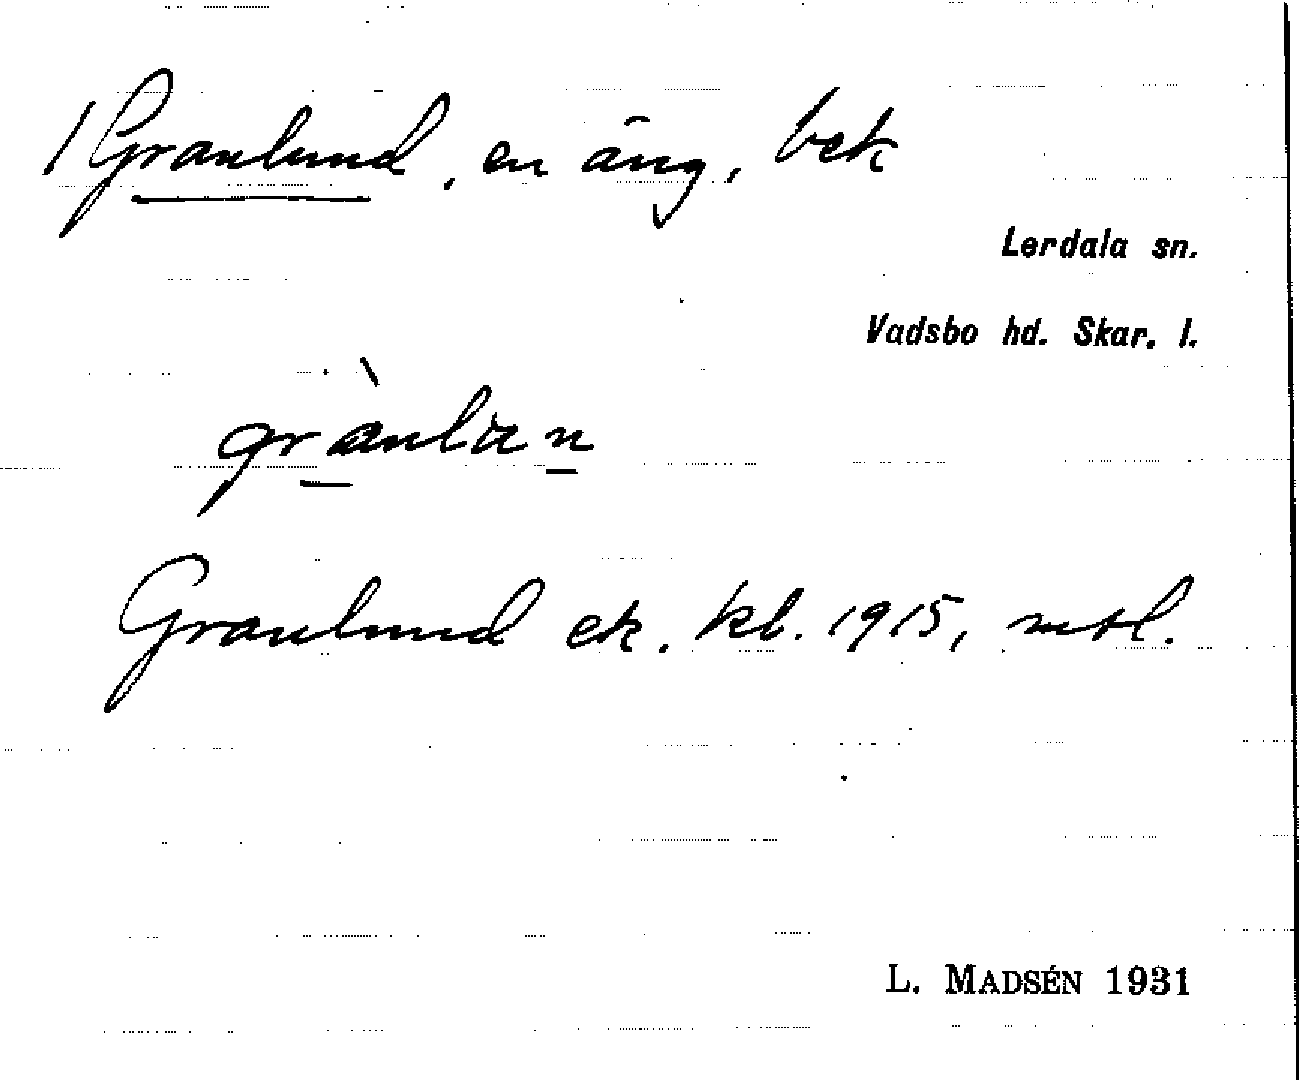 / Granlund, en äng, bek
Lerdala sn.
Vadsbo hd. Skar. l.
Granlund ek. kl. 1915, mtl.
L. MADSÉN 1931